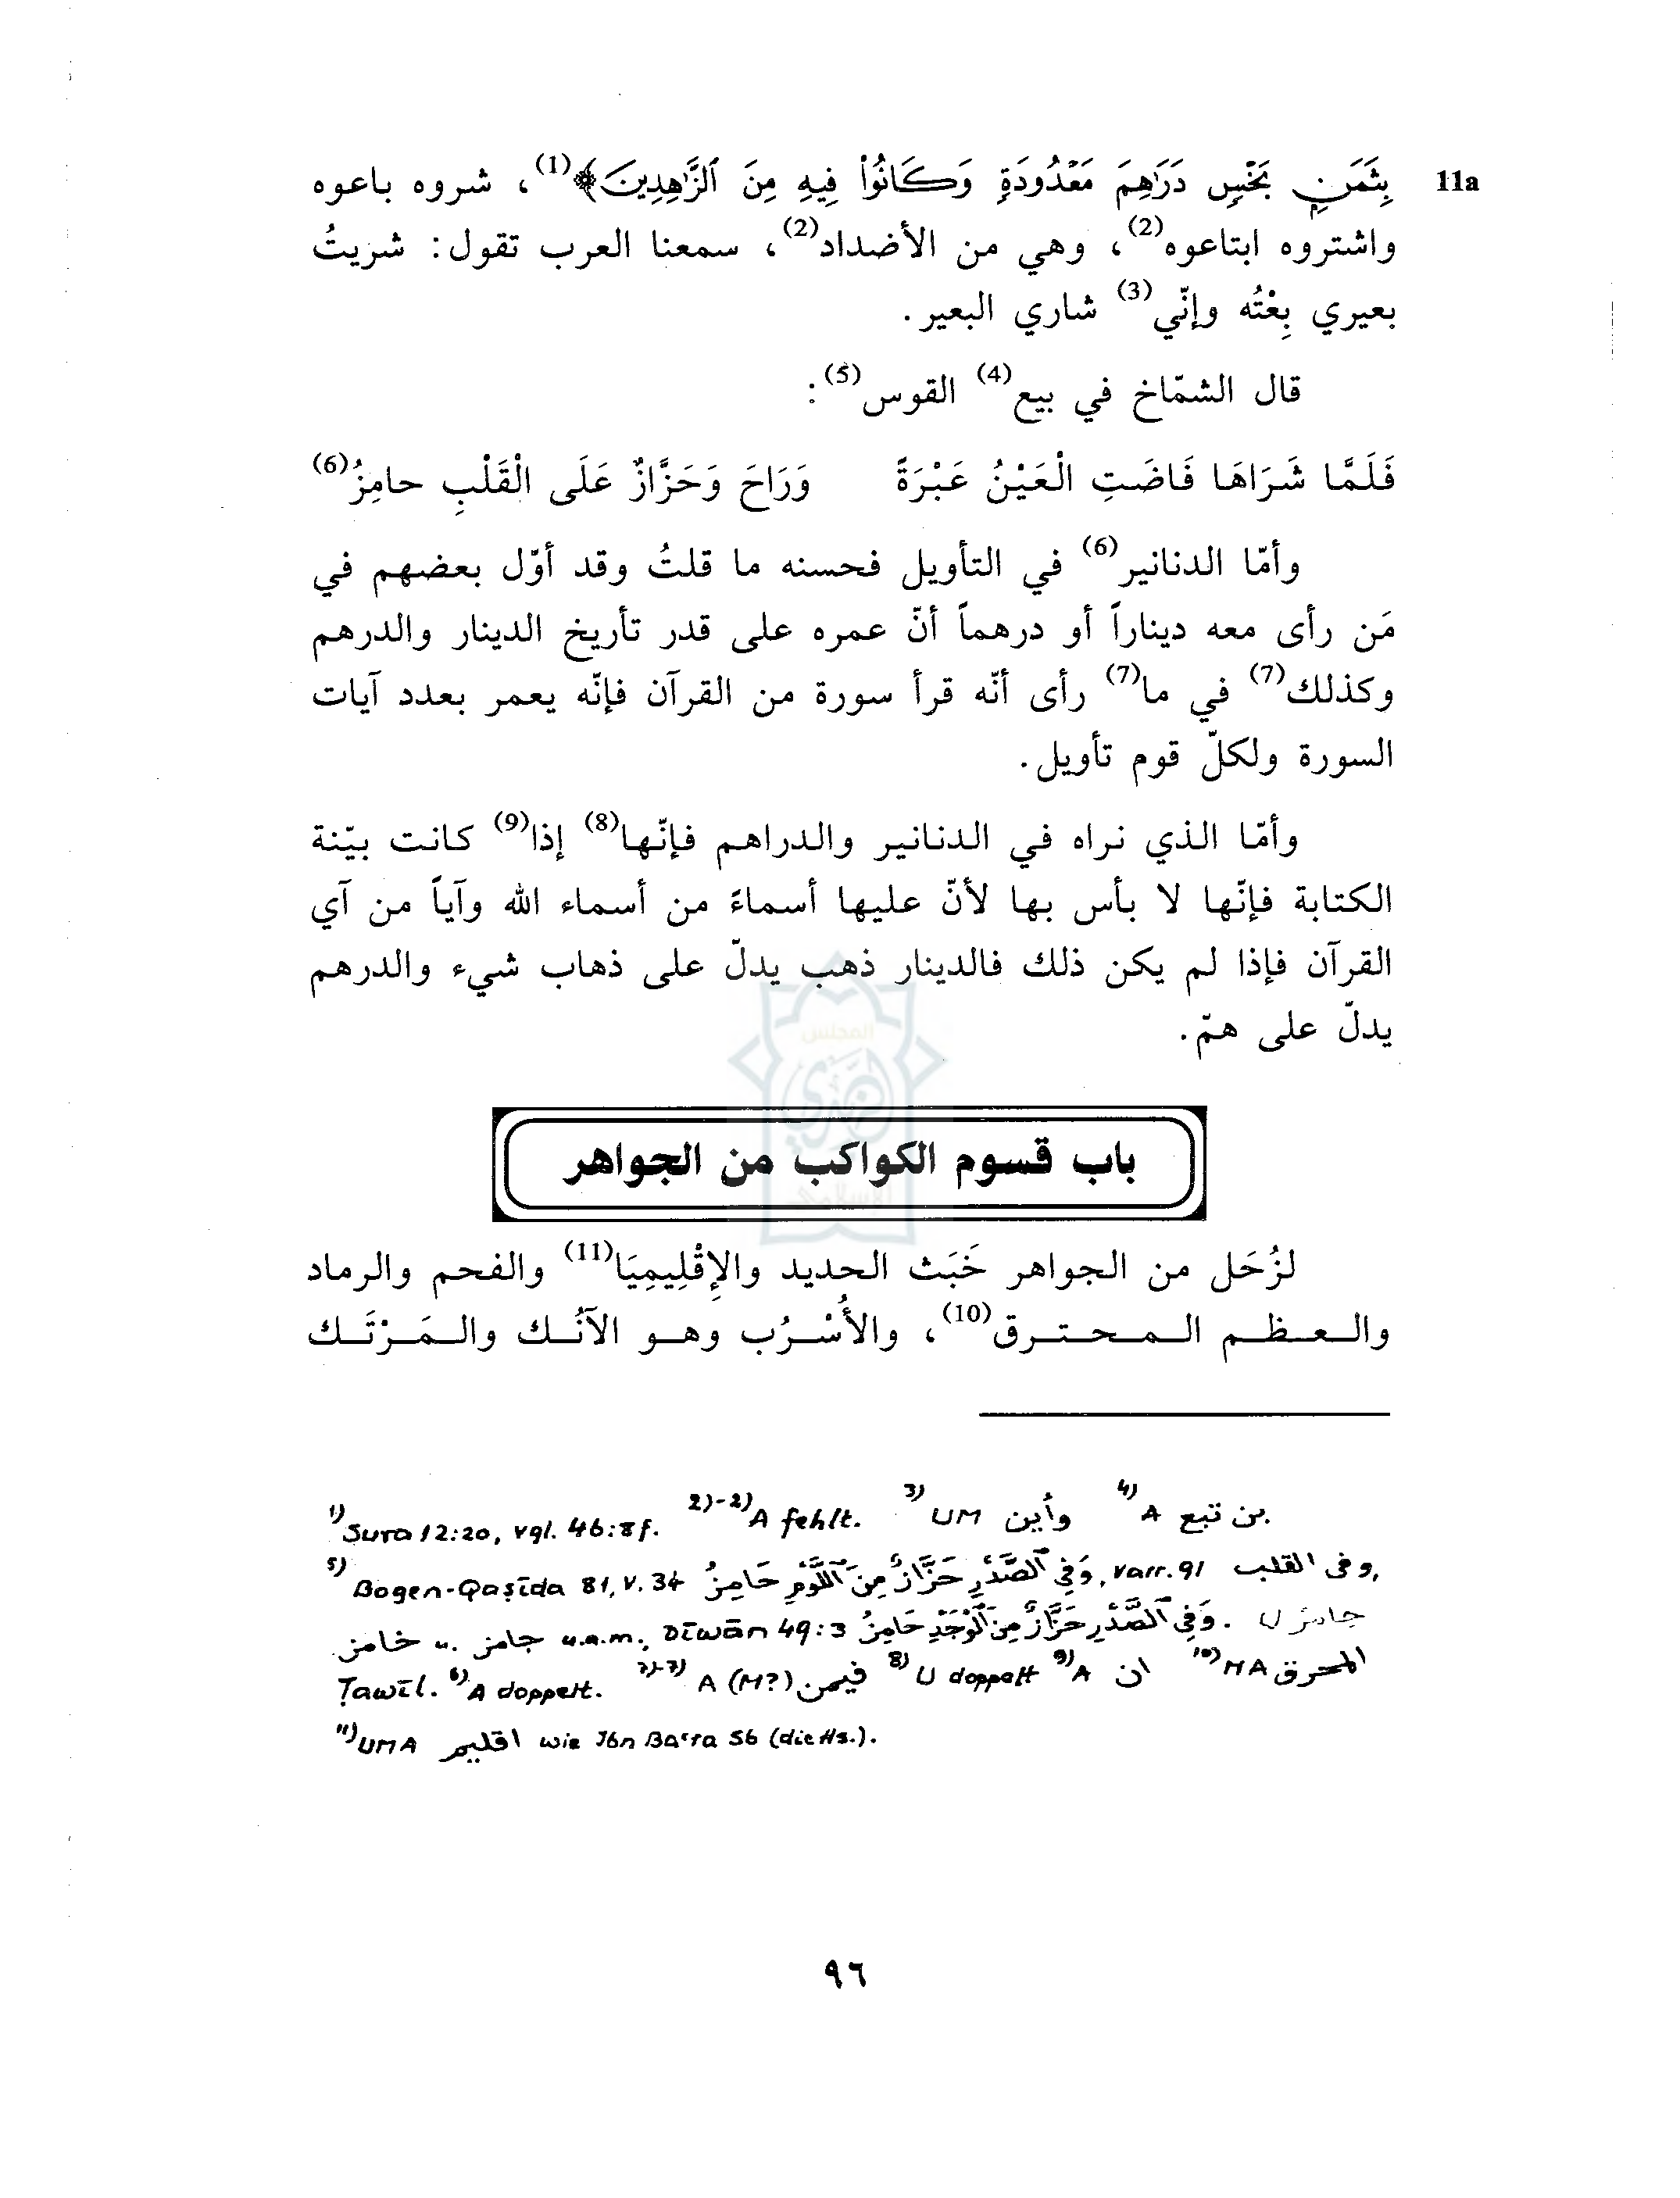 11a بِثَمَنٍ بَخْسٍ دَرَاهِمَ مَعْدُودَةٍ وَكَانُوا فِيهِ مِنَ الزَّاهِدِينَ﴾(1)، شروه باعوه
واشتروه ابتاعوه(2)، وهي من الأضداد(2)، سمعنا العرب تقول: شريتُ
بعيري بِعْتُه وإنّي(3) شاري البعير.
قال الشمّاخ في بيع(4) القوس(5):
فَلَمَّا شَرَاهَا فَاضَتِ الْعَيْنُ عَبْرَةً وَرَاحَ وَحَزَّازٌ عَلَى الْقَلْبِ حامِزُ(6)
وأمّا الدنانير(6) في التأويل فحسنه ما قلتُ وقد أوّل بعضهم في
مَن رأى معه ديناراً أو درهماً أنّ عمره على قدر تأريخ الدينار والدرهم
وكذلك(7) في ما(7) رأى أنّه قرأ سورة من القرآن فإنّه يعمر بعدد آيات
السورة ولكلّ قوم تأويل.
وأمّا الذي نراه في الدنانير والدراهم فإنّها(8) إذا(9) كانت بيّنة
الكتابة فإنّها لا بأس بها لأنّ عليها أسماءً من أسماء الله وآياً من آي
القرآن فإذا لم يكن ذلك فالدينار ذهب يدلّ على ذهاب شيء والدرهم
يدلّ على همّ.
المجلس
الإسلامي
باب قسوم الكواكب من الجواهر
لزُحَل من الجواهر خَبَث الحديد والإِقْلِيمِيَا(11) والفحم والرماد
والعظم المحترق(10)، والأُسْرُب وهو الآنُك والمَرْتَك
1) Sura 12:20, vgl. 46:8f. 2)-2) A fehlt. 3) UM وأين 4) A بن تبع.
5) Bogen-Qaṣīda 81, v. 34 وَفِي الصَّدْرِ حَزَّازٌ مِنَ اللَّوْمِ حَامِزُ, varr. 91 وفى القلب,
جامز U . وَفِي الصَّدْرِ حَزَّازٌ مِنَ الْوَجْدِ حَامِزُ Dīwān 49:3 ; u.a.m. جامز u. خامز.
Ṭawīl. 6) A doppelt. 7)-7) A (M?) فيمن 8) U doppelt 9) A ان 10) MA المحرق
11) UMA اقليم wie Ibn Baʿra 56 (die Hs.).
٩٦